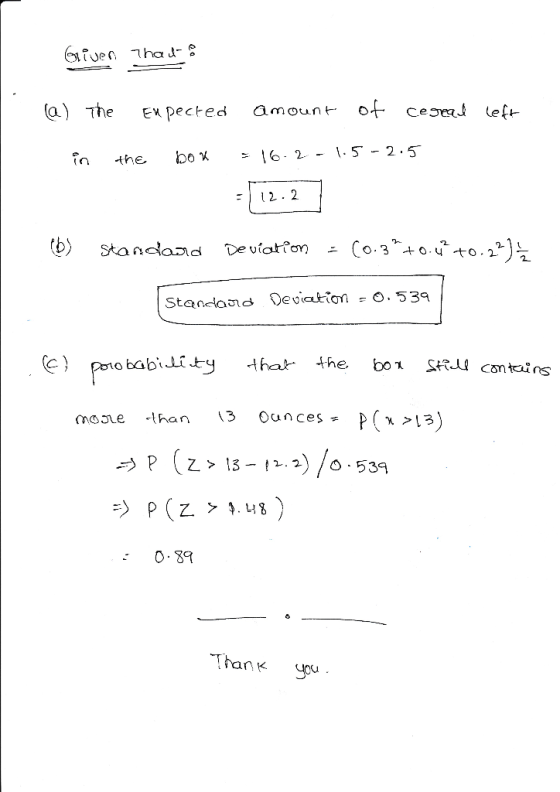 Given That :
(a) The Expected amount of cereal left
in the box = 16.2 - 1.5 - 2.5
= 12.2
(b) Standard Deviation = (0.3² + 0.4² + 0.2²) ½
Standard Deviation = 0.539
(c) probability that the box still contains
more than 13 ounces = P(x >13)
⇒ P (Z > 13 - 12.2) / 0.539
⇒ P (Z > 1.48 )
= 0.89
Thank you.